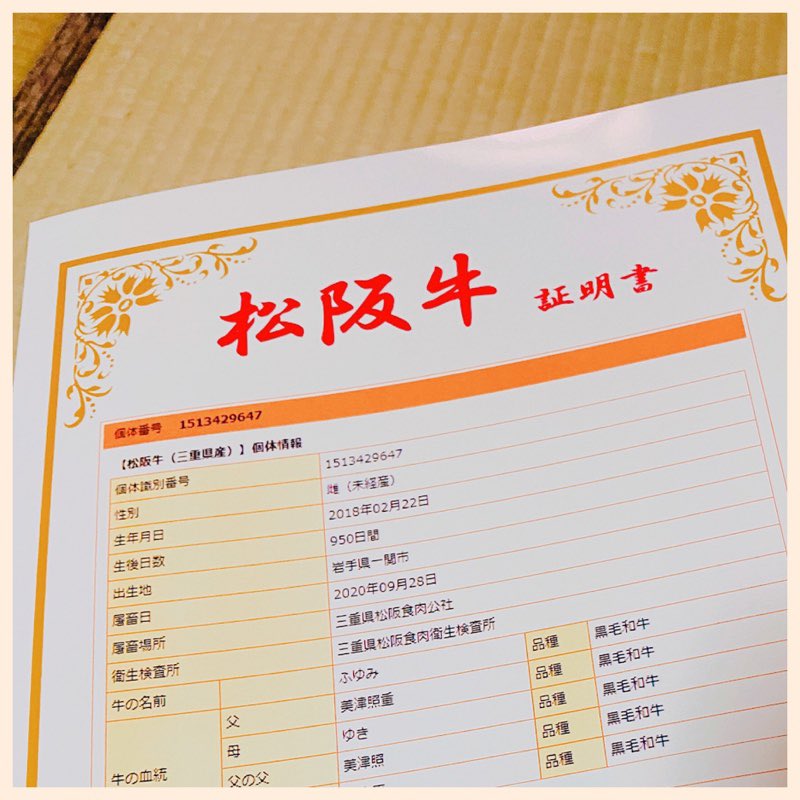 松阪牛 証明書
個体番号 1513429647
【松阪牛（三重県産）】個体情報
個体識別番号 1513429647
性別 雌（未経産）
生年月日 2018年02月22日
生後日数 950日間
出生地 岩手県一関市
屠畜日 2020年09月28日
屠畜場所 三重県松阪食肉公社
衛生検査所 三重県松阪食肉衛生検査所
牛の名前 ふゆみ 品種 黒毛和牛
牛の血統 父 美津照重 品種 黒毛和牛
母 ゆき 品種 黒毛和牛
父の父 美津照 品種 黒毛和牛
黒毛和牛